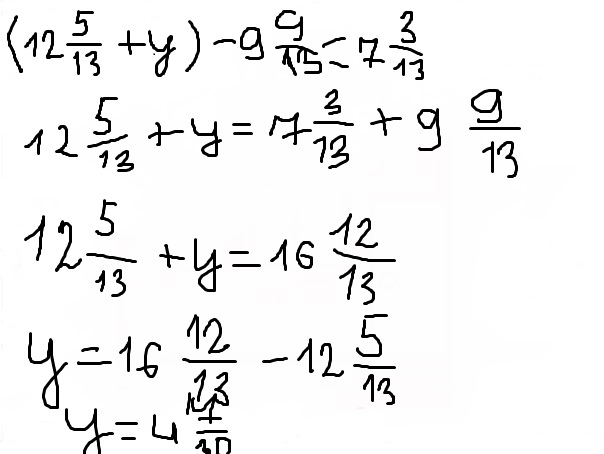 (12 5/13 + y) - 9 9/13 = 7 3/13
12 5/13 + y = 7 3/13 + 9 9/13
12 5/13 + y = 16 12/13
y = 16 12/13 - 12 5/13
y = 4